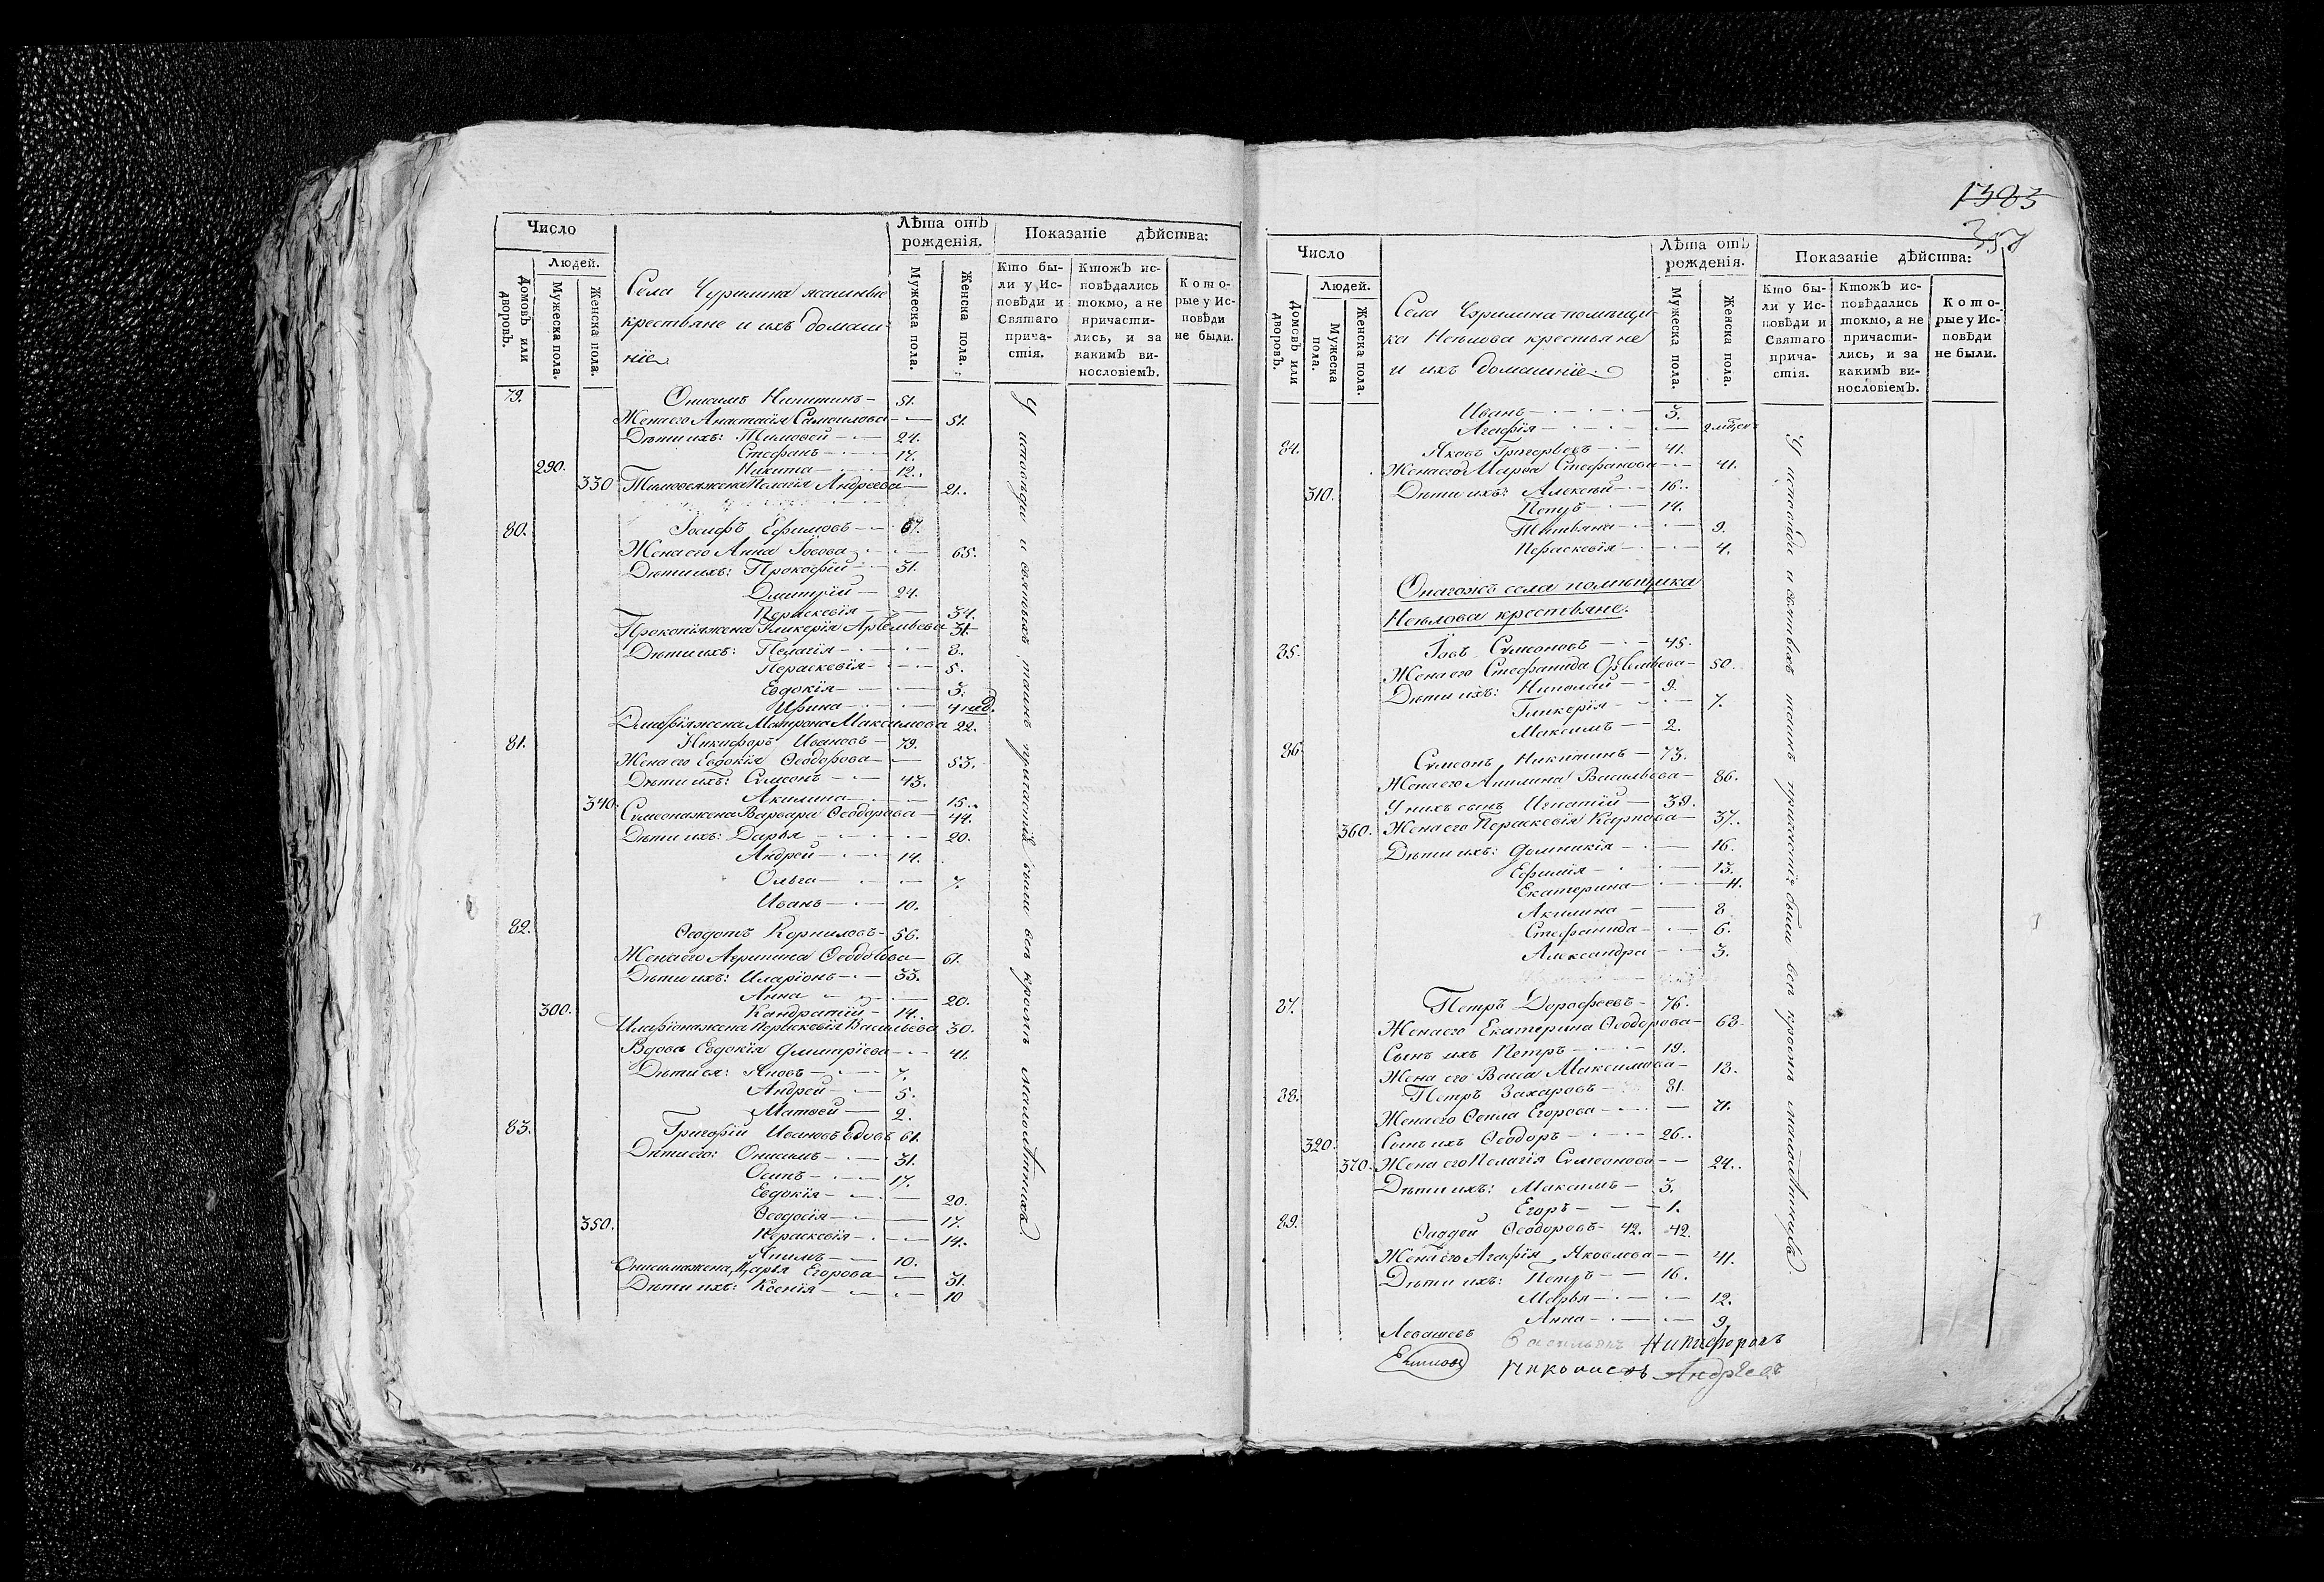 Число
Людей.
Домовъ или дворовъ.
Мужеска пола.
Женска пола.
Села Чурилина ясашные
крестьяне и ихъ домаш-
нїе.
Лѣта отъ рожденія.
Мужеска пола.
Женска пола.
Показаніе дѣйства:
Кто бы-
ли у Ис-
повѣди и
Святаго
прича-
стія.
Ктожъ ис-
повѣдались
токмо, а не
причасти-
лись, и за
какимъ ви-
нословіемъ.
Кото-
рые у Ис-
повѣди
не были.
79. Онисимъ Никитинъ 51.
Жена его Анастасїя Самоилова 51.
Дѣти ихъ: Тимофей 24.
Стефанъ 17.
290. Никита 12.
330 Тимофея жена Пелагїя Андреева 21.
80. Іосифъ Ефимовъ 67.
Жена его Анна 65.
Дѣти ихъ: Прокофїй 31.
Дмитрїй 24.
Параскевїя 34.
Прокопїя жена Гликерїя Артемьева 31
Дѣти ихъ: Пелагїя 8.
Параскевїя 5.
Евдокїя 3.
Ирина 4 нед.
Дмитрїя жена Матрона Максимова 22.
81. Никифоръ Ивановъ 79.
Жена его Евдокїя Ѳеодорова 53.
Дѣти ихъ: Сѵмеонъ 43.
340. Акилина 15.
Сѵмеона жена Варвара Ѳеодорова 44.
Дѣти ихъ: Дарья 20.
Андрей 14.
Ольга 7.
Иванъ 10.
82. Ѳеодотъ Корниловъ 56.
Жена его Агрипина 61.
Дѣти ихъ: Иларїонъ 33.
Анна 20.
300. Кандратїй 14.
Иларїона жена Параскевїя Васильева 30.
Вдова Евдокїя Дмитрїева 41.
Дѣти ея: Яковъ 7.
Андрей 5.
Матвей 2.
83. Григорїй Ивановъ вдовъ 61.
Дѣти его: Онисимъ 31.
Осипъ 17.
Евдокїя 20.
350. Ѳеодосїя 17.
Параскевїя 14.
Якимъ 10.
Онисима жена Марья Егорова 31.
Дѣти ихъ: Ксенїя 10
У исповѣди и святыхъ таинъ причастїя были всѣ кромѣ малолѣтнихъ.
1383
357
Число
Людей.
Домовъ или дворовъ.
Мужеска пола.
Женска пола.
Села Чурилина помѣщи-
ка Неѣлова крестьяне
и ихъ домашнїе.
Лѣта отъ рожденія.
Мужеска пола.
Женска пола.
Показаніе дѣйства:
Кто бы-
ли у Ис-
повѣди и
Святаго
прича-
стія.
Ктожъ ис-
повѣдались
токмо, а не
причасти-
лись, и за
какимъ ви-
нословіемъ.
Кото-
рые у Ис-
повѣди
не были.
Иванъ 3.
Агафїя
84. Яковъ Григорьевъ 41.
Жена его Марѳа Стефанова 41.
310. Дѣти ихъ: Алексѣй 16.
Петръ 14.
Татьяна 9.
Параскевїя 4.
Онагожъ села помѣщика
Неѣлова крестьяне.
85. Іовъ Сѵмеоновъ 45.
Жена его Стефанида 50.
Дѣти ихъ: Николай 9.
Гликерїя 7.
Максимъ 2.
86 Сѵмеонъ Никитинъ 73.
Жена его Акилина Васильева 86.
У нихъ сынъ Игнатїй 39.
360. Жена его Параскевїя Карпова 37.
Дѣти ихъ: Домникїя 16.
Ефимїя 13.
Екатерина 11.
Акилина 8
Стефанида 6.
Александра 3.
87. Петръ Дорофеевъ 76.
Жена его Екатерина Ѳеодорова 63
Сынъ ихъ Петръ 19.
Жена его Васса Максимова 18.
88. Петръ Захаровъ 81.
Жена его Ѳекла Егорова 71.
320. Сынъ ихъ Ѳеодоръ 26.
370. Жена его Пелагїя Сѵмеонова 24.
Дѣти ихъ: Максимъ 3.
Егоръ 1.
89. Ѳаддей Ѳеодоровъ 42. 42.
Жена его Агафїя Яковлева 41.
Дѣти ихъ: Петръ 16.
Марья 12.
Анна 9.
У исповѣди и святыхъ таинъ причастїя были всѣ кромѣ малолѣтнихъ.
Левашевъ Василїй Никифоровъ
Андрѣевъ